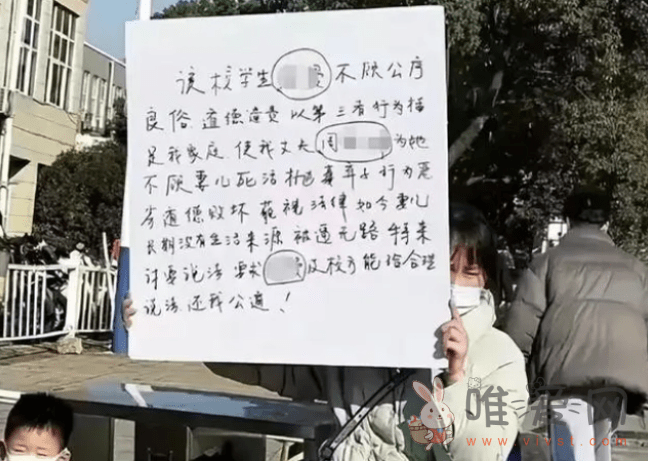 该校学生 不顾公序
良俗.道德沦丧.以第三者行为插
足我家庭.使我丈夫周 为她
不顾妻儿死活抛妻弃子行为恶
劣道德败坏藐视法律如今妻儿
长期没有生活来源被逼无路特来
讨要说法要求 及校方能给合理
说法.还我公道！
唯爱网
www.vivst.com